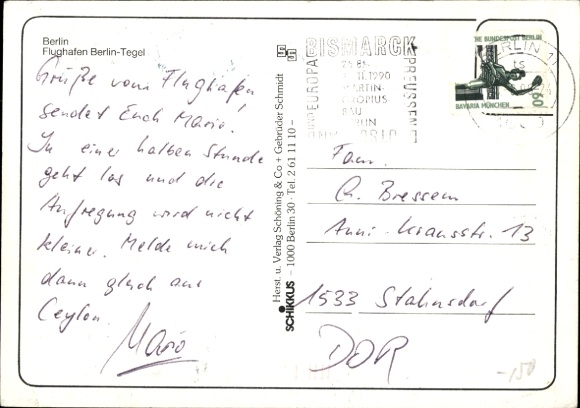 Berlin
Flughafen Berlin-Tegel
Grüße vom Flughafen
sendet Euch Mario!
In einer halben Stunde
geht los und die
Aufregung wird nicht
kleiner. Melde mich
dann gleich aus
Ceylon.
Mario
Herst. u. Verlag Schöning & Co + Gebrüder Schmidt
SCHIKKUS – 1000 Berlin 30 · Tel. 2 61 11 10 –
BISMARCK
PREUSSEN
EUROPA
25.8.-
11.1990
MARTIN-
GROPIUS-
BAU
BERLIN
DEUTSCHE BUNDESPOST BERLIN
BAVARIA MÜNCHEN
60
BERLIN 11
ts
Fam.
G. Bressem
Anni-Krausstr. 13
1533 Stahnsdorf
DDR
-150